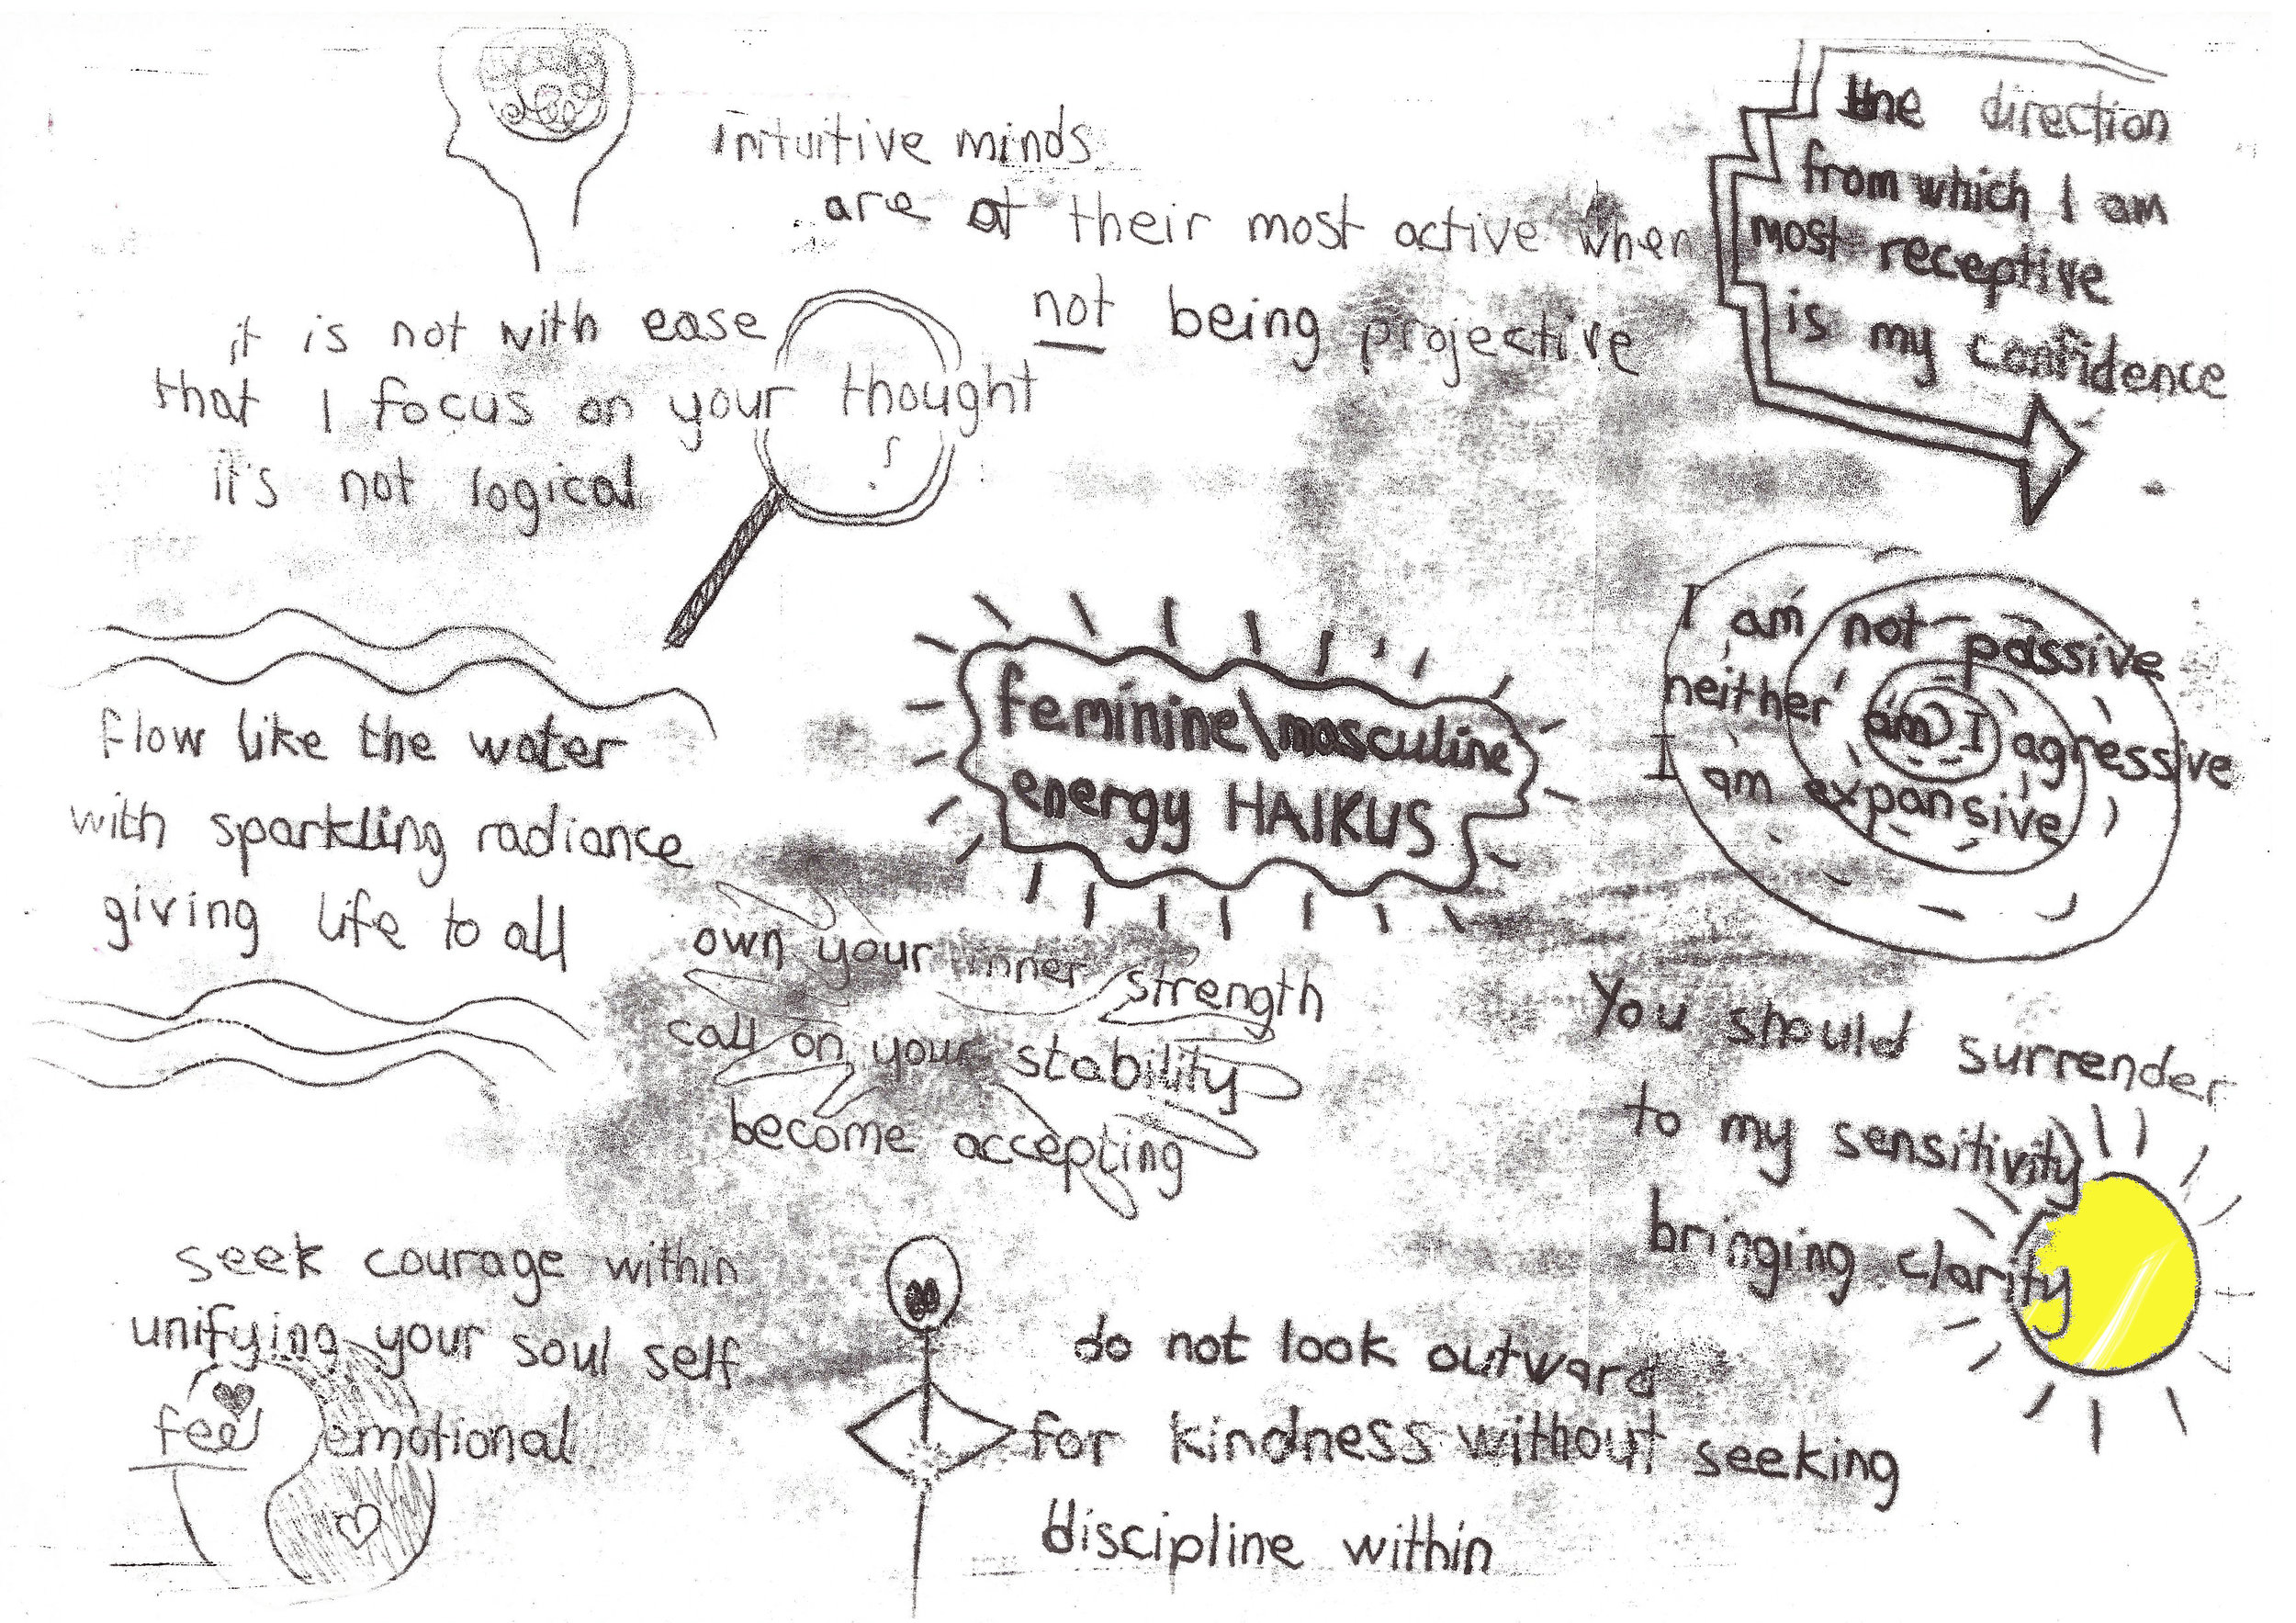 intuitive minds
are at their most active when
not being projective
the direction
from which I am
most receptive
is my confidence
it is not with ease
that I focus on your thought
it's not logical
feminine\masculine
energy HAIKUS
I am not passive
neither am I agressive
I am expansive
flow like the water
with sparkling radiance
giving life to all
own your inner strength
call on your stability
become accepting
You should surrender
to my sensitivity
bringing clarity
seek courage within
unifying your soul self
feel emotional
do not look outward
for kindness without seeking
discipline within